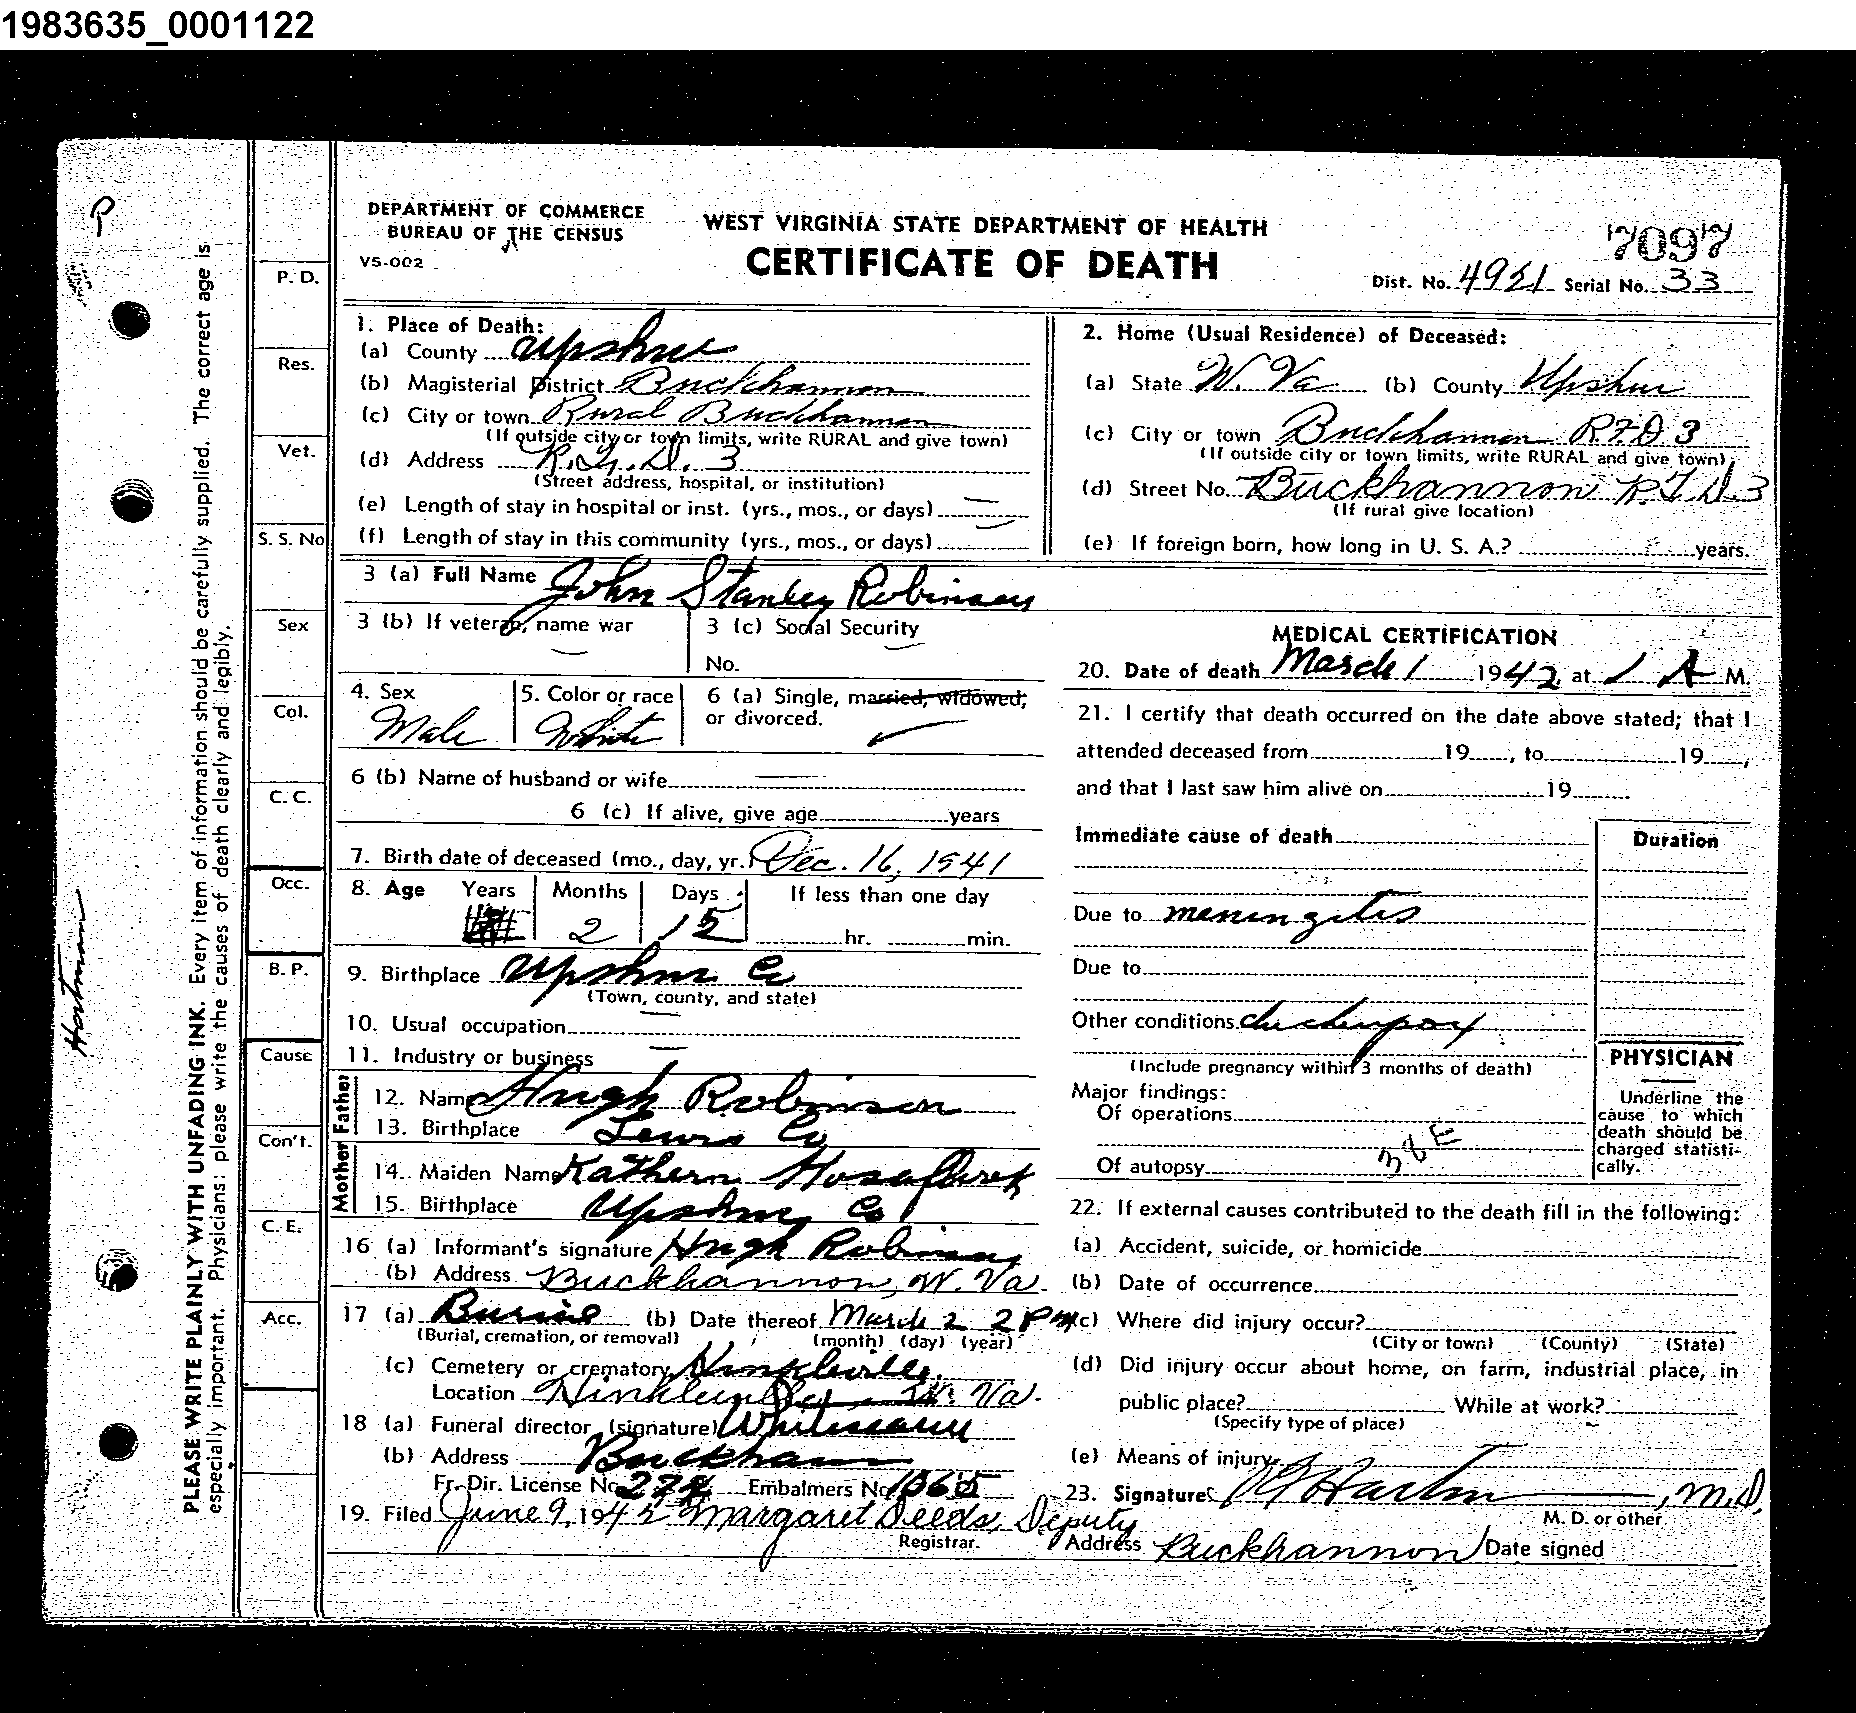 1983635_0001122
P
DEPARTMENT OF COMMERCE
BUREAU OF THE CENSUS
VS-002
WEST VIRGINIA STATE DEPARTMENT OF HEALTH
CERTIFICATE OF DEATH
7097
Dist. No. 4921 Serial No. 33
PLEASE WRITE PLAINLY WITH UNFADING INK. Every item of information should be carefully supplied. The correct age is
especially important. Physicians: please write the causes of death clearly and legibly.
Hartman
P. D.
Res.
Vet.
S. S. No
Sex
Col.
C. C.
Occ.
B. P.
Cause
Con't.
C. E.
Acc.
1. Place of Death:
(a) County Upshur
(b) Magisterial District Buckhannon
(c) City or town Rural Buckhannon
(If outside city or town limits, write RURAL and give town)
(d) Address R.F.D. 3
(Street address, hospital, or institution)
(e) Length of stay in hospital or inst. (yrs., mos., or days) —
(f) Length of stay in this community (yrs., mos., or days)
2. Home (Usual Residence) of Deceased:
(a) State W. Va (b) County Upshur
(c) City or town Buckhannon RFD 3
(If outside city or town limits, write RURAL and give town)
(d) Street No. Buckhannon R.F.D. 3
(If rural give location)
(e) If foreign born, how long in U. S. A.? years.
3 (a) Full Name John Stanley Robinson
3 (b) If veteran, name war —
3 (c) Social Security —
No.
4. Sex Male
5. Color or race White
6 (a) Single, married, widowed,
or divorced.
6 (b) Name of husband or wife —
6 (c) If alive, give age years
7. Birth date of deceased (mo., day, yr.) Dec. 16, 1941
8. Age Years Months Days If less than one day
2 15 hr. min.
9. Birthplace Upshur Co
(Town, county, and state)
10. Usual occupation —
11. Industry or business —
Father
12. Name Hugh Robinson
13. Birthplace Lewis Co
Mother
14. Maiden Name Kathern Hosaflook
15. Birthplace Upshur Co
16 (a) Informant's signature Hugh Robinson
(b) Address Buckhannon, W. Va.
17 (a) Burial (b) Date thereof March 2 2 PM
(Burial, cremation, or removal) (month) (day) (year)
(c) Cemetery or crematory Hinkleville
Location Hinkleville W. Va.
18 (a) Funeral director (signature) Whitescarver
(b) Address Buckhannon
Fr. Dir. License No. 274 Embalmers No. 1065
19. Filed June 9, 1942 Margaret Deeds, Deputy
Registrar.
MEDICAL CERTIFICATION
20. Date of death March 1 1942 at 1 A M.
21. I certify that death occurred on the date above stated; that I
attended deceased from 19 , to 19 ,
and that I last saw him alive on 19
Immediate cause of death
Duration
Due to meningitis
Due to
Other conditions chickenpox
(Include pregnancy within 3 months of death)
Major findings:
Of operations
Of autopsy
38E
PHYSICIAN
Underline the
cause to which
death should be
charged statisti-
cally.
22. If external causes contributed to the death fill in the following:
(a) Accident, suicide, or homicide
(b) Date of occurrence
(c) Where did injury occur?
(City or town) (County) (State)
(d) Did injury occur about home, on farm, industrial place, in
public place? While at work?
(Specify type of place)
(e) Means of injury
23. Signature Hartman, M.D.
M. D. or other
Address Buckhannon Date signed